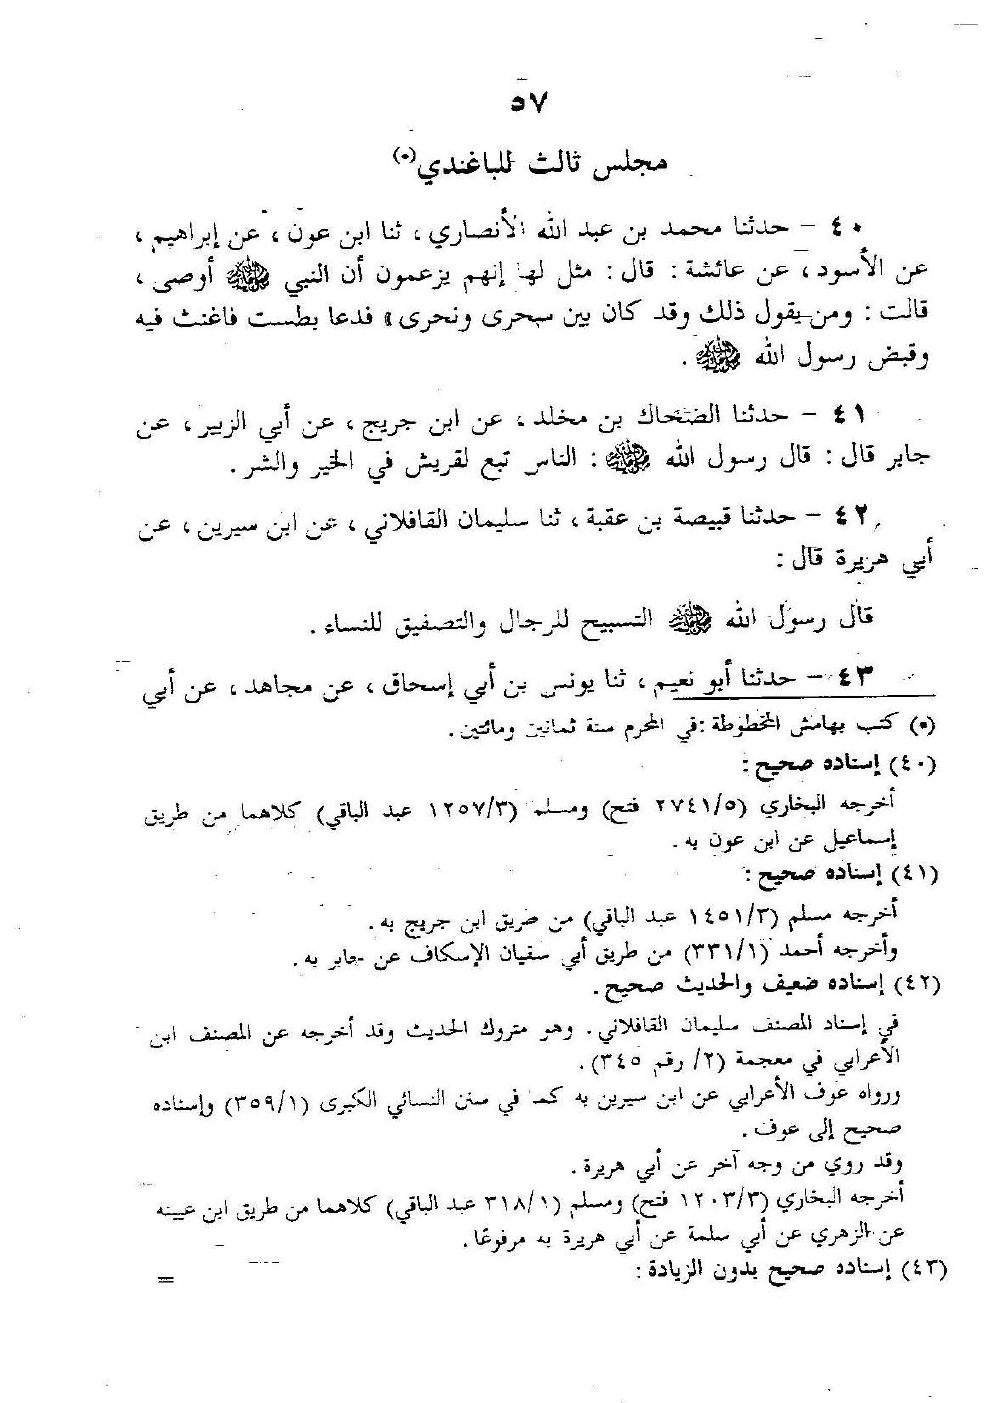 ٥٧
مجلس ثالث للباغندي(٠)
٤٠ - حدثنا محمد بن عبد الله الأنصاري، ثنا ابن عون، عن إبراهيم،
عن الأسود، عن عائشة: قال: مثل لها إنهم يزعمون أن النبي ﷺ أوصى،
قالت: ومن يقول ذلك وقد كان بين سحرى ونحرى» فدعا بطست فاغنث فيه
وقبض رسول الله ﷺ.
٤١ - حدثنا الضحاك بن مخلد، عن ابن جريج، عن أبي الزبير، عن
جابر قال: قال رسول الله ﷺ: الناس تبع لقريش في الخير والشر.
٤٢ - حدثنا قبيصة بن عقبة، ثنا سليمان القافلاني، عن ابن سيرين، عن
أبي هريرة قال:
قال رسول الله ﷺ التسبيح للرجال والتصفيق للنساء.
٤٣ - حدثنا أبو نعيم، ثنا يونس بن أبي إسحاق، عن مجاهد، عن أبي
(٠) كتب بهامش المخطوطة: في المحرم سنة ثمانين ومائتين.
(٤٠) إسناده صحيح:
أخرجه البخاري (٢٧٤١/٥ فتح) ومسلم (١٢٥٧/٣ عبد الباقي) كلاهما من طريق
إسماعيل عن ابن عون به.
(٤١) إسناده صحيح:
أخرجه مسلم (١٤٥١/٣ عبد الباقي) من طريق ابن جريج به.
وأخرجه أحمد (٣٣١/١) من طريق أبي سفيان الإسكاف عن جابر به.
(٤٢) إسناده ضعيف والحديث صحيح.
في إسناد المصنف سليمان القافلاني. وهو متروك الحديث وقد أخرجه عن المصنف ابن
الأعرابي في معجمة (٢/ رقم ٣٤٥).
ورواه عوف الأعرابي عن ابن سيرين به كما في سنن النسائي الكبرى (٣٥٩/١) وإسناده
صحيح إلى عوف.
وقد روي من وجه آخر عن أبي هريرة.
أخرجه البخاري (١٢٠٣/٣ فتح) ومسلم (٣١٨/١ عبد الباقي) كلاهما من طريق ابن عيينه
عن الزهري عن أبي سلمة عن أبي هريرة به مرفوعًا.
(٤٣) إسناده صحيح بدون الزيادة:
=